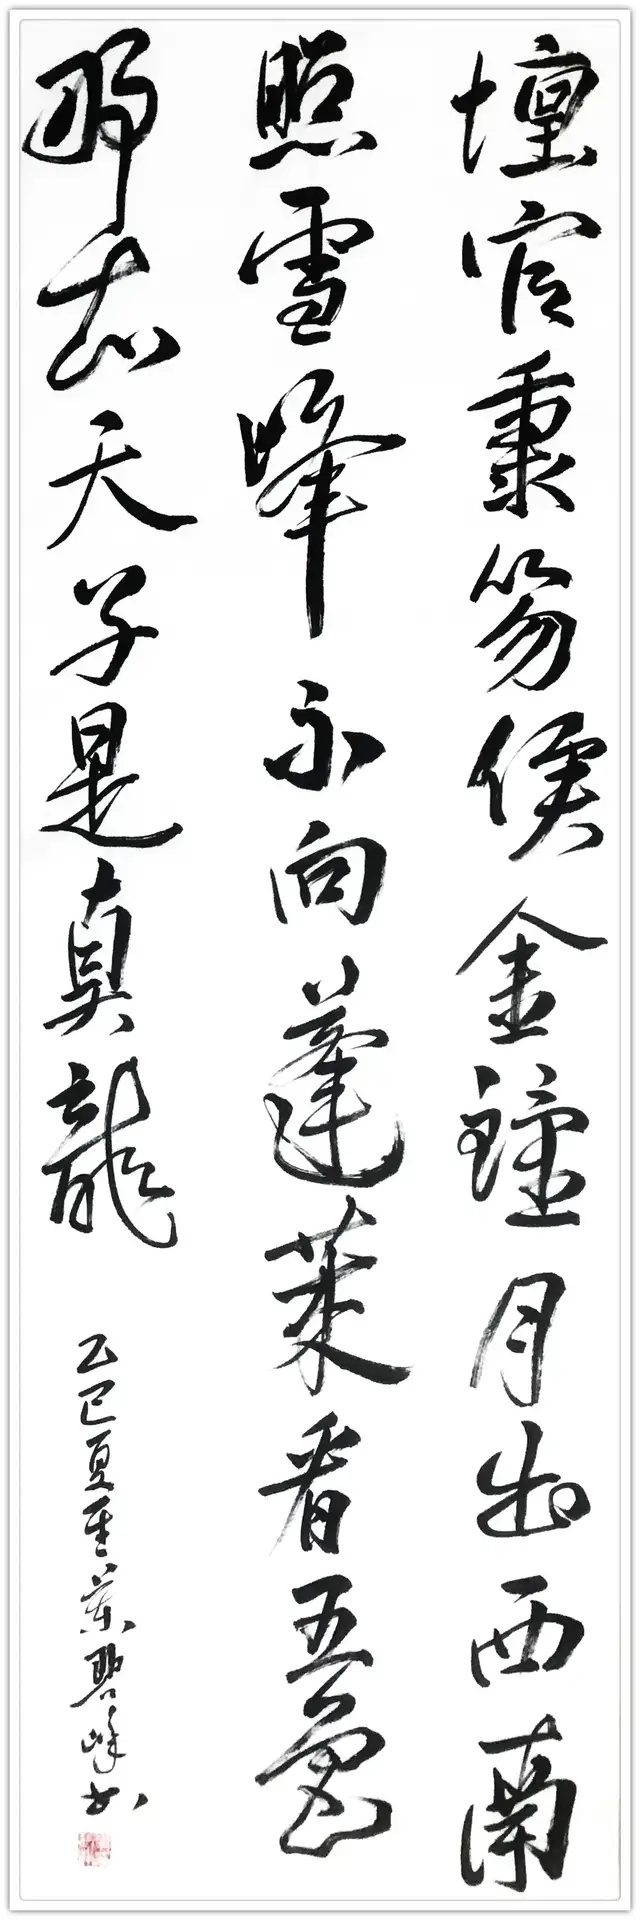 壇官秉笏候金鐘月出西南
照雪峰不向蓬萊看五色
那知天子是真龍
乙巳夏至葉碧峰书